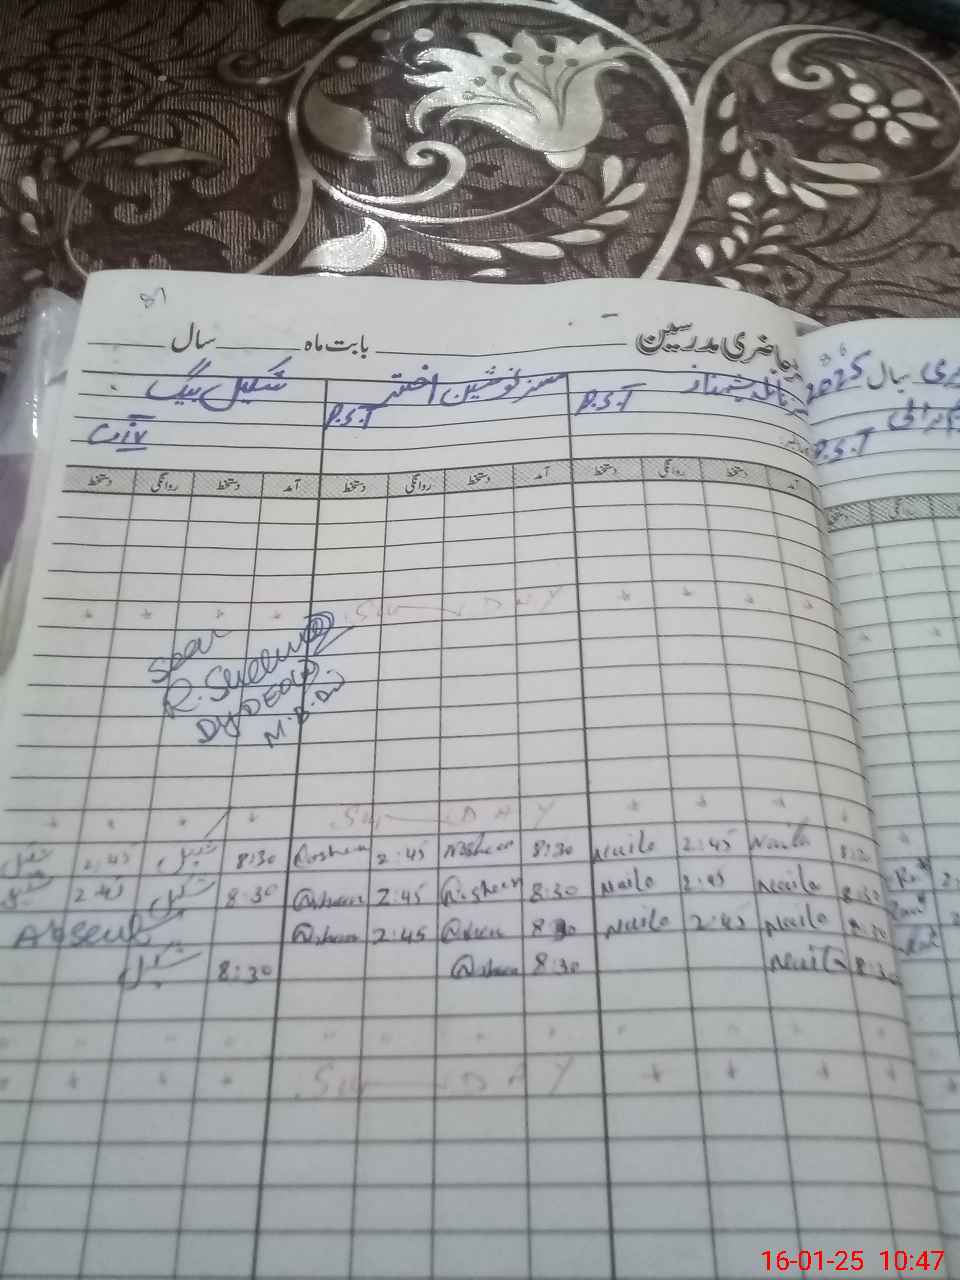 حاضری مدرسین بابت ماه سال
2025 سال
شکیل بیگ
مسز نوشین اختر
P.S.T
P.S.T
P.S.T
دستخط روانگی دستخط آمد دستخط روانگی دستخط آمد دستخط روانگی دستخط آمد
SUNDAY
Seen
DyDEO
SUNDAY
شکیل 2:45 شکیل 8:30 Nosheen 2:45 Nosheen 8:30 Naila 2:45 Naila 8:30
شکیل 2:45 شکیل 8:30 Nosheen 2:45 Nosheen 8:30 Naila 2:45 Naila 8:30
Absent Nosheen 2:45 Nosheen 8:30 Naila 2:45 Naila 8:30
شکیل 8:30 Nosheen 8:30 Naila 8:30
SUNDAY
16-01-25 10:47